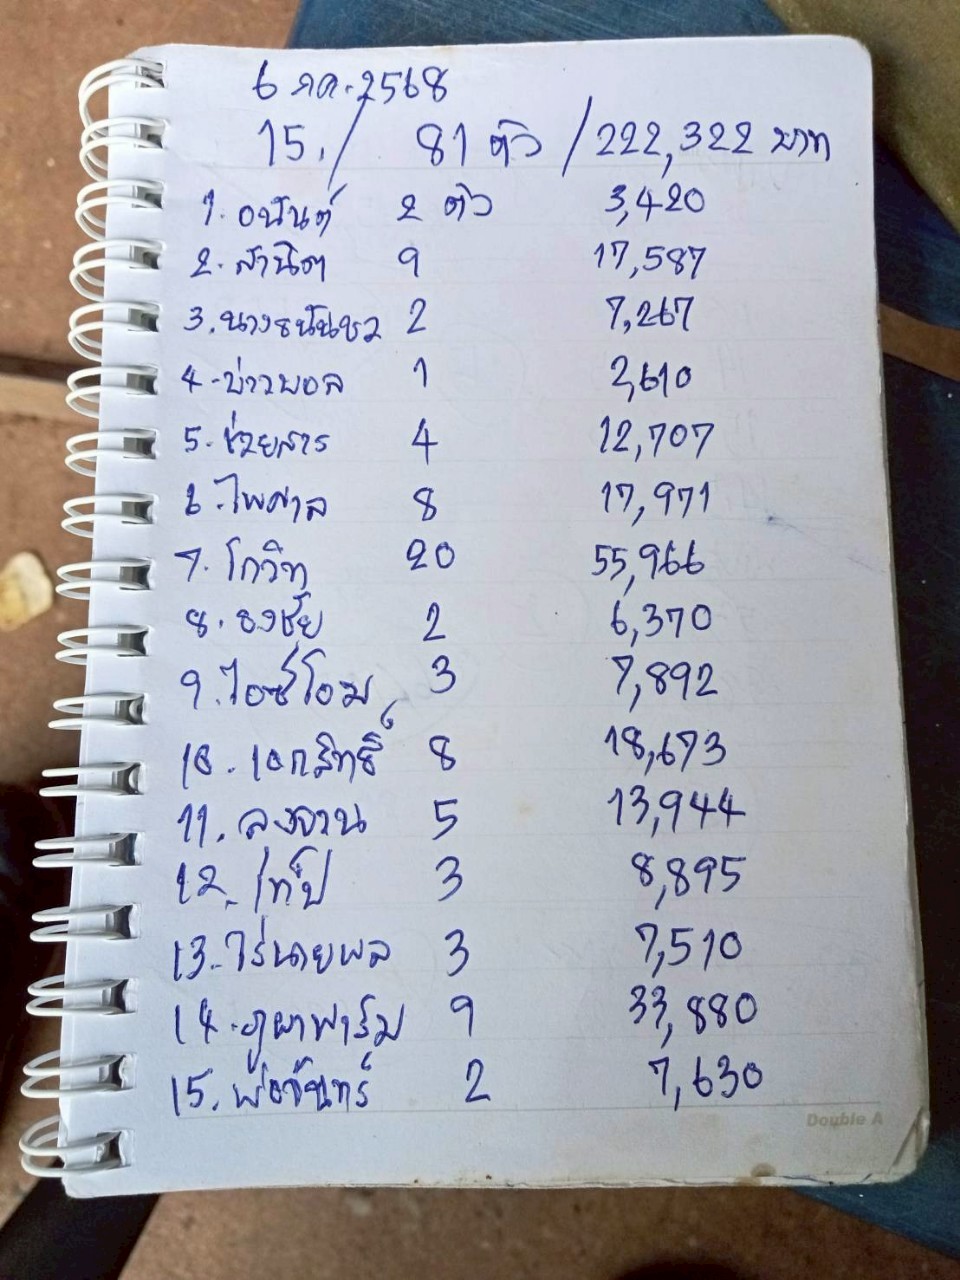 6 กค. 2568
15. / 81 ตัว / 222,322 บาท
1. อนันต์ 2 ตัว 3,420
2. สานิตา 9 17,587
3. นางธนันชว 2 7,267
4. บ่าวพอล 1 2,610
5. ช่วยสาร 4 12,707
6. ไพศาล 8 17,971
7. โกวิท 20 55,966
8. ธงชัย 2 6,370
9. ไอซ์โอม 3 7,892
10. เอกสิทธิ์ 8 18,673
11. ลุงจาน 5 13,944
12. เท่ป 3 8,895
13. ไร่นายพล 3 7,510
14. ภูผาฟาร์ม 9 33,880
15. พ่อจันทร์ 2 7,630
Double A